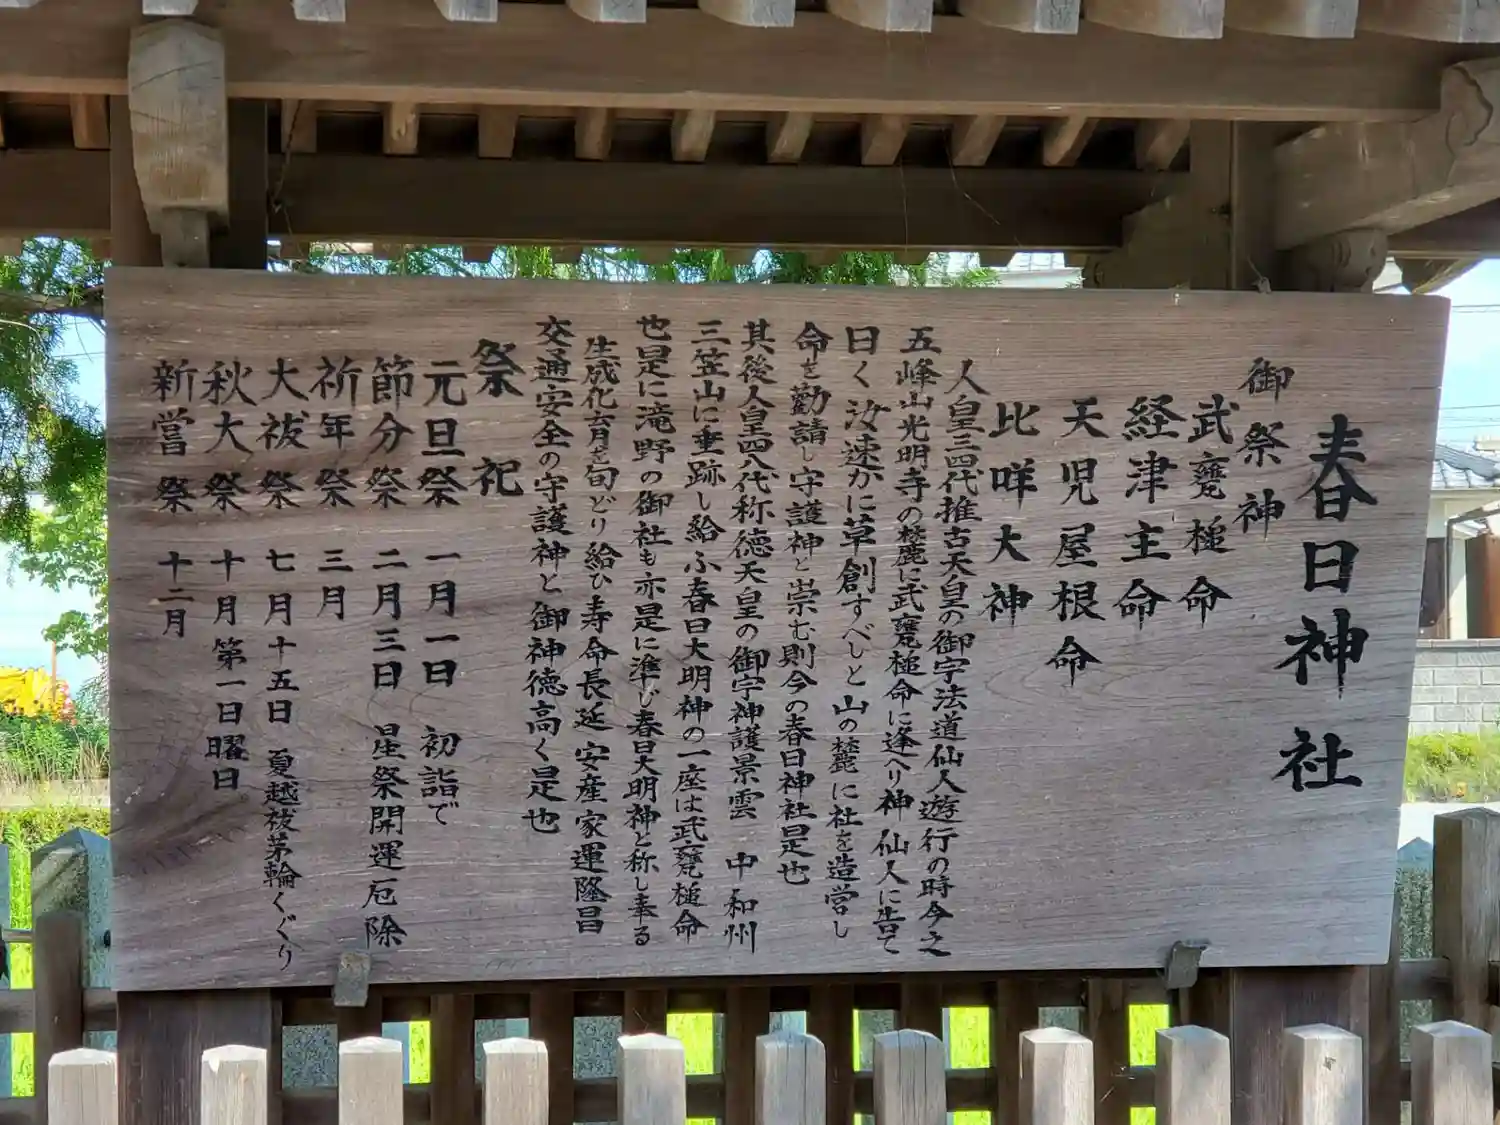 春日神社
御祭神
武甕槌命
経津主命
天児屋根命
比咩大神
人皇三四代推古天皇の御宇法道仙人遊行の時今之
五峰山光明寺の麓に武甕槌命に逢へり神仙人に告て
曰く汝速かに草創すべしと山の麓に社を造営し
命を勸請し守護神と崇む則今の春日神社是也
其後人皇四八代称徳天皇の御宇神護景雲 中和州
三笠山に垂跡し給ふ春日大明神の一座は武甕槌命
也是に滝野の御社も亦是に準じ春日大明神と称し奉る
生成化育を旬どり給ひ寿命長延安産家運隆昌
交通安全の守護神と御神徳高く是也
祭祀
元旦祭 一月一日 初詣で
節分祭 二月三日 星祭開運厄除
祈年祭 三月
大祓祭 七月十五日 夏越祓茅輪くぐり
秋大祭 十月第一日曜日
新嘗祭 十二月